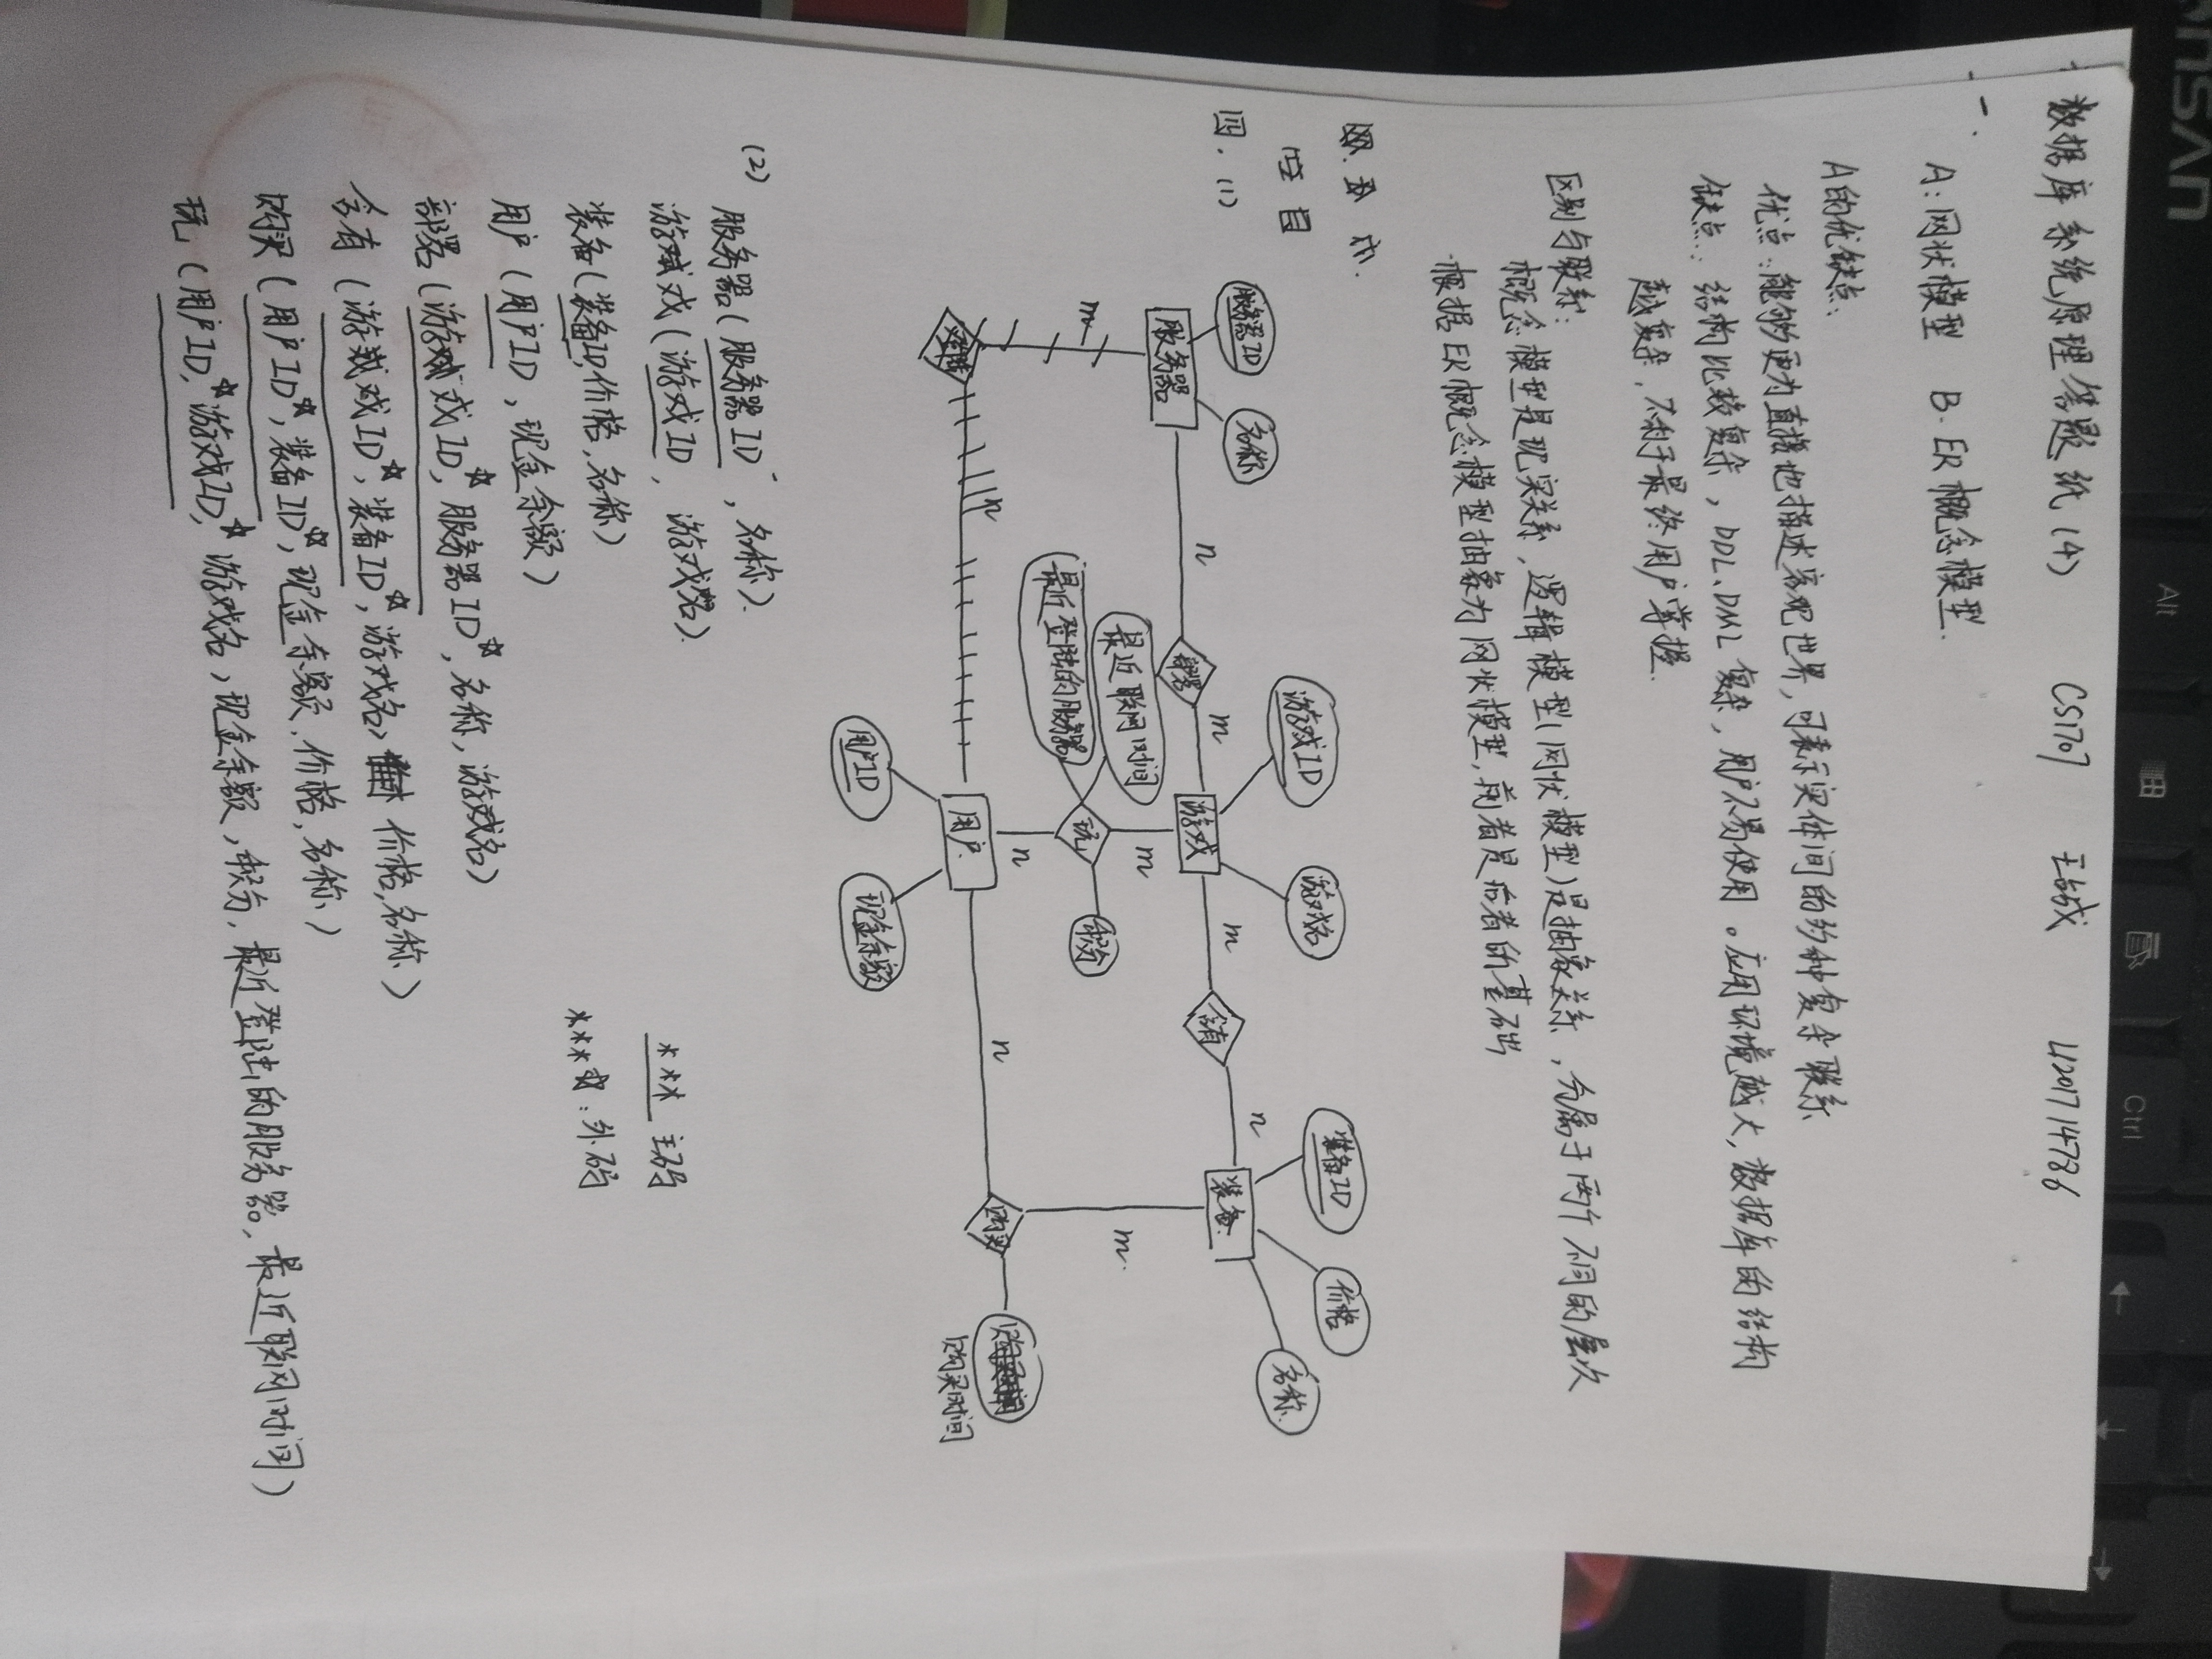 数据库系统原理答题纸(4) CS1707 王城 U201714786
一.
A:网状模型 B.ER概念模型.
A的优缺点:
优点:能够更为直接地描述客观世界,可表示实体间的多种复杂联系
缺点:结构比较复杂,DDL、DML复杂,用户不易使用。应用环境越大,数据库的结构
越复杂,不利于最终用户掌握.
区别与联系:
概念模型是现实关系,逻辑模型(网状模型)是抽象关系,分属于两个不同的层次
根据ER概念模型抽象为网状模型,前者是后者的基础
四.(1)
服务器ID
名称
服务器
n
部署
m
游戏ID
游戏名
游戏
m
含有
n
装备ID
价格
名称
装备
m
n
最近登陆的服务器
最近联网时间
m
玩
n
积分
用户ID
用户
现金余额
n
购买
m.
购买时间
(2) 服务器(服务器ID,名称).
游戏(游戏ID,游戏名).
装备(装备ID,价格,名称)
用户(用户ID,现金余额)
部署(游戏ID*,服务器ID*,名称,游戏名)
含有(游戏ID*,装备ID*,游戏名,价格,名称)
购买(用户ID*,装备ID*,现金余额、价格,名称)
玩(用户ID*,游戏ID*,游戏名,现金余额,积分,最近登陆的服务器,最近联网时间)
*** 主码
****:外码
Alt
Ctrl